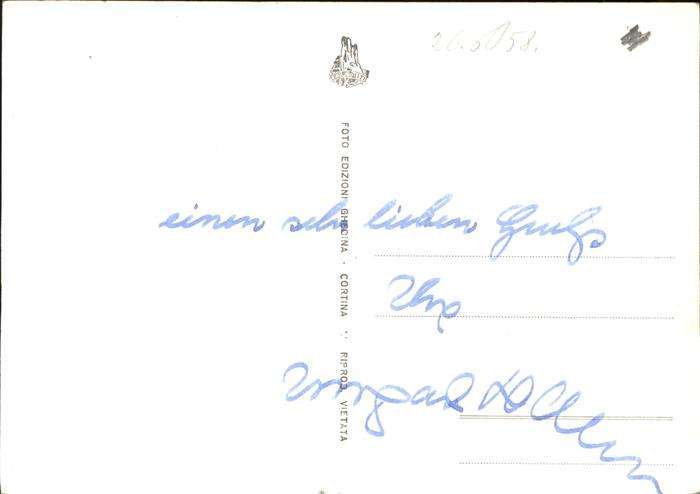 26.5.58.
FOTO EDIZIONI GHEDINA - CORTINA RIPROD. VIETATA
einen sehr lieben Gruß
Ihre